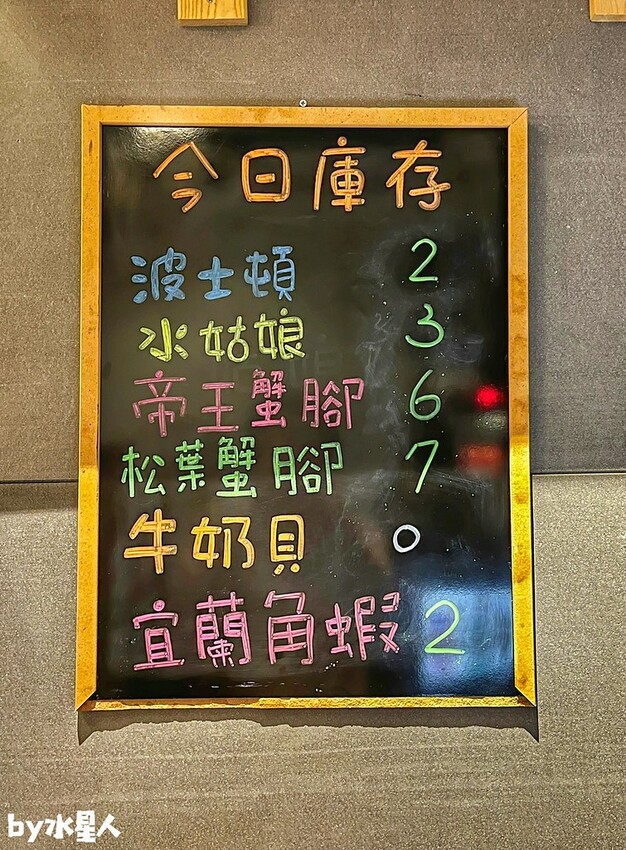 今日庫存
波士頓 2
水姑娘 3
帝王蟹腳 6
松葉蟹腳 7
牛奶貝 0
宜蘭角蝦 2
by水星人